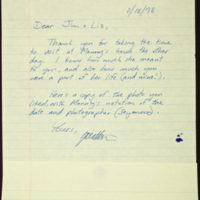 2/18/98
Dear Jim & Liz,
Thank you for taking the time
to visit at Manny's house the other
day. I know how much she meant
to you, and also how much you
were a part of her life (and mine!).
Here's a copy of the photo you
liked, with Manny's notation of the
date and photographer (Seymour).
Yours,